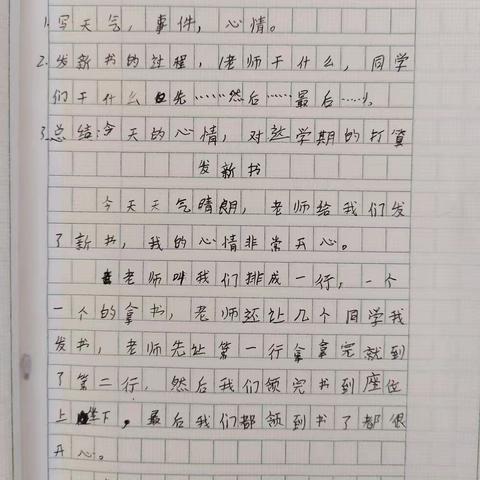 1.写天气,事件,心情。
2.发新书的过程,(老师干什么,同学
们干什么 先……然后……最后……),
3.总结:今天的心情,对新学期的打算
发新书
今天天气晴朗,老师给我们发
了新书,我的心情非常开心。
老师叫我们排成一行,一个
一个的拿书,老师还让几个同学我
发书,老师先让第一行拿拿完就到
了第二行,然后我们领完书到座位
上坐下,最后我们都领到书了都很
开心。